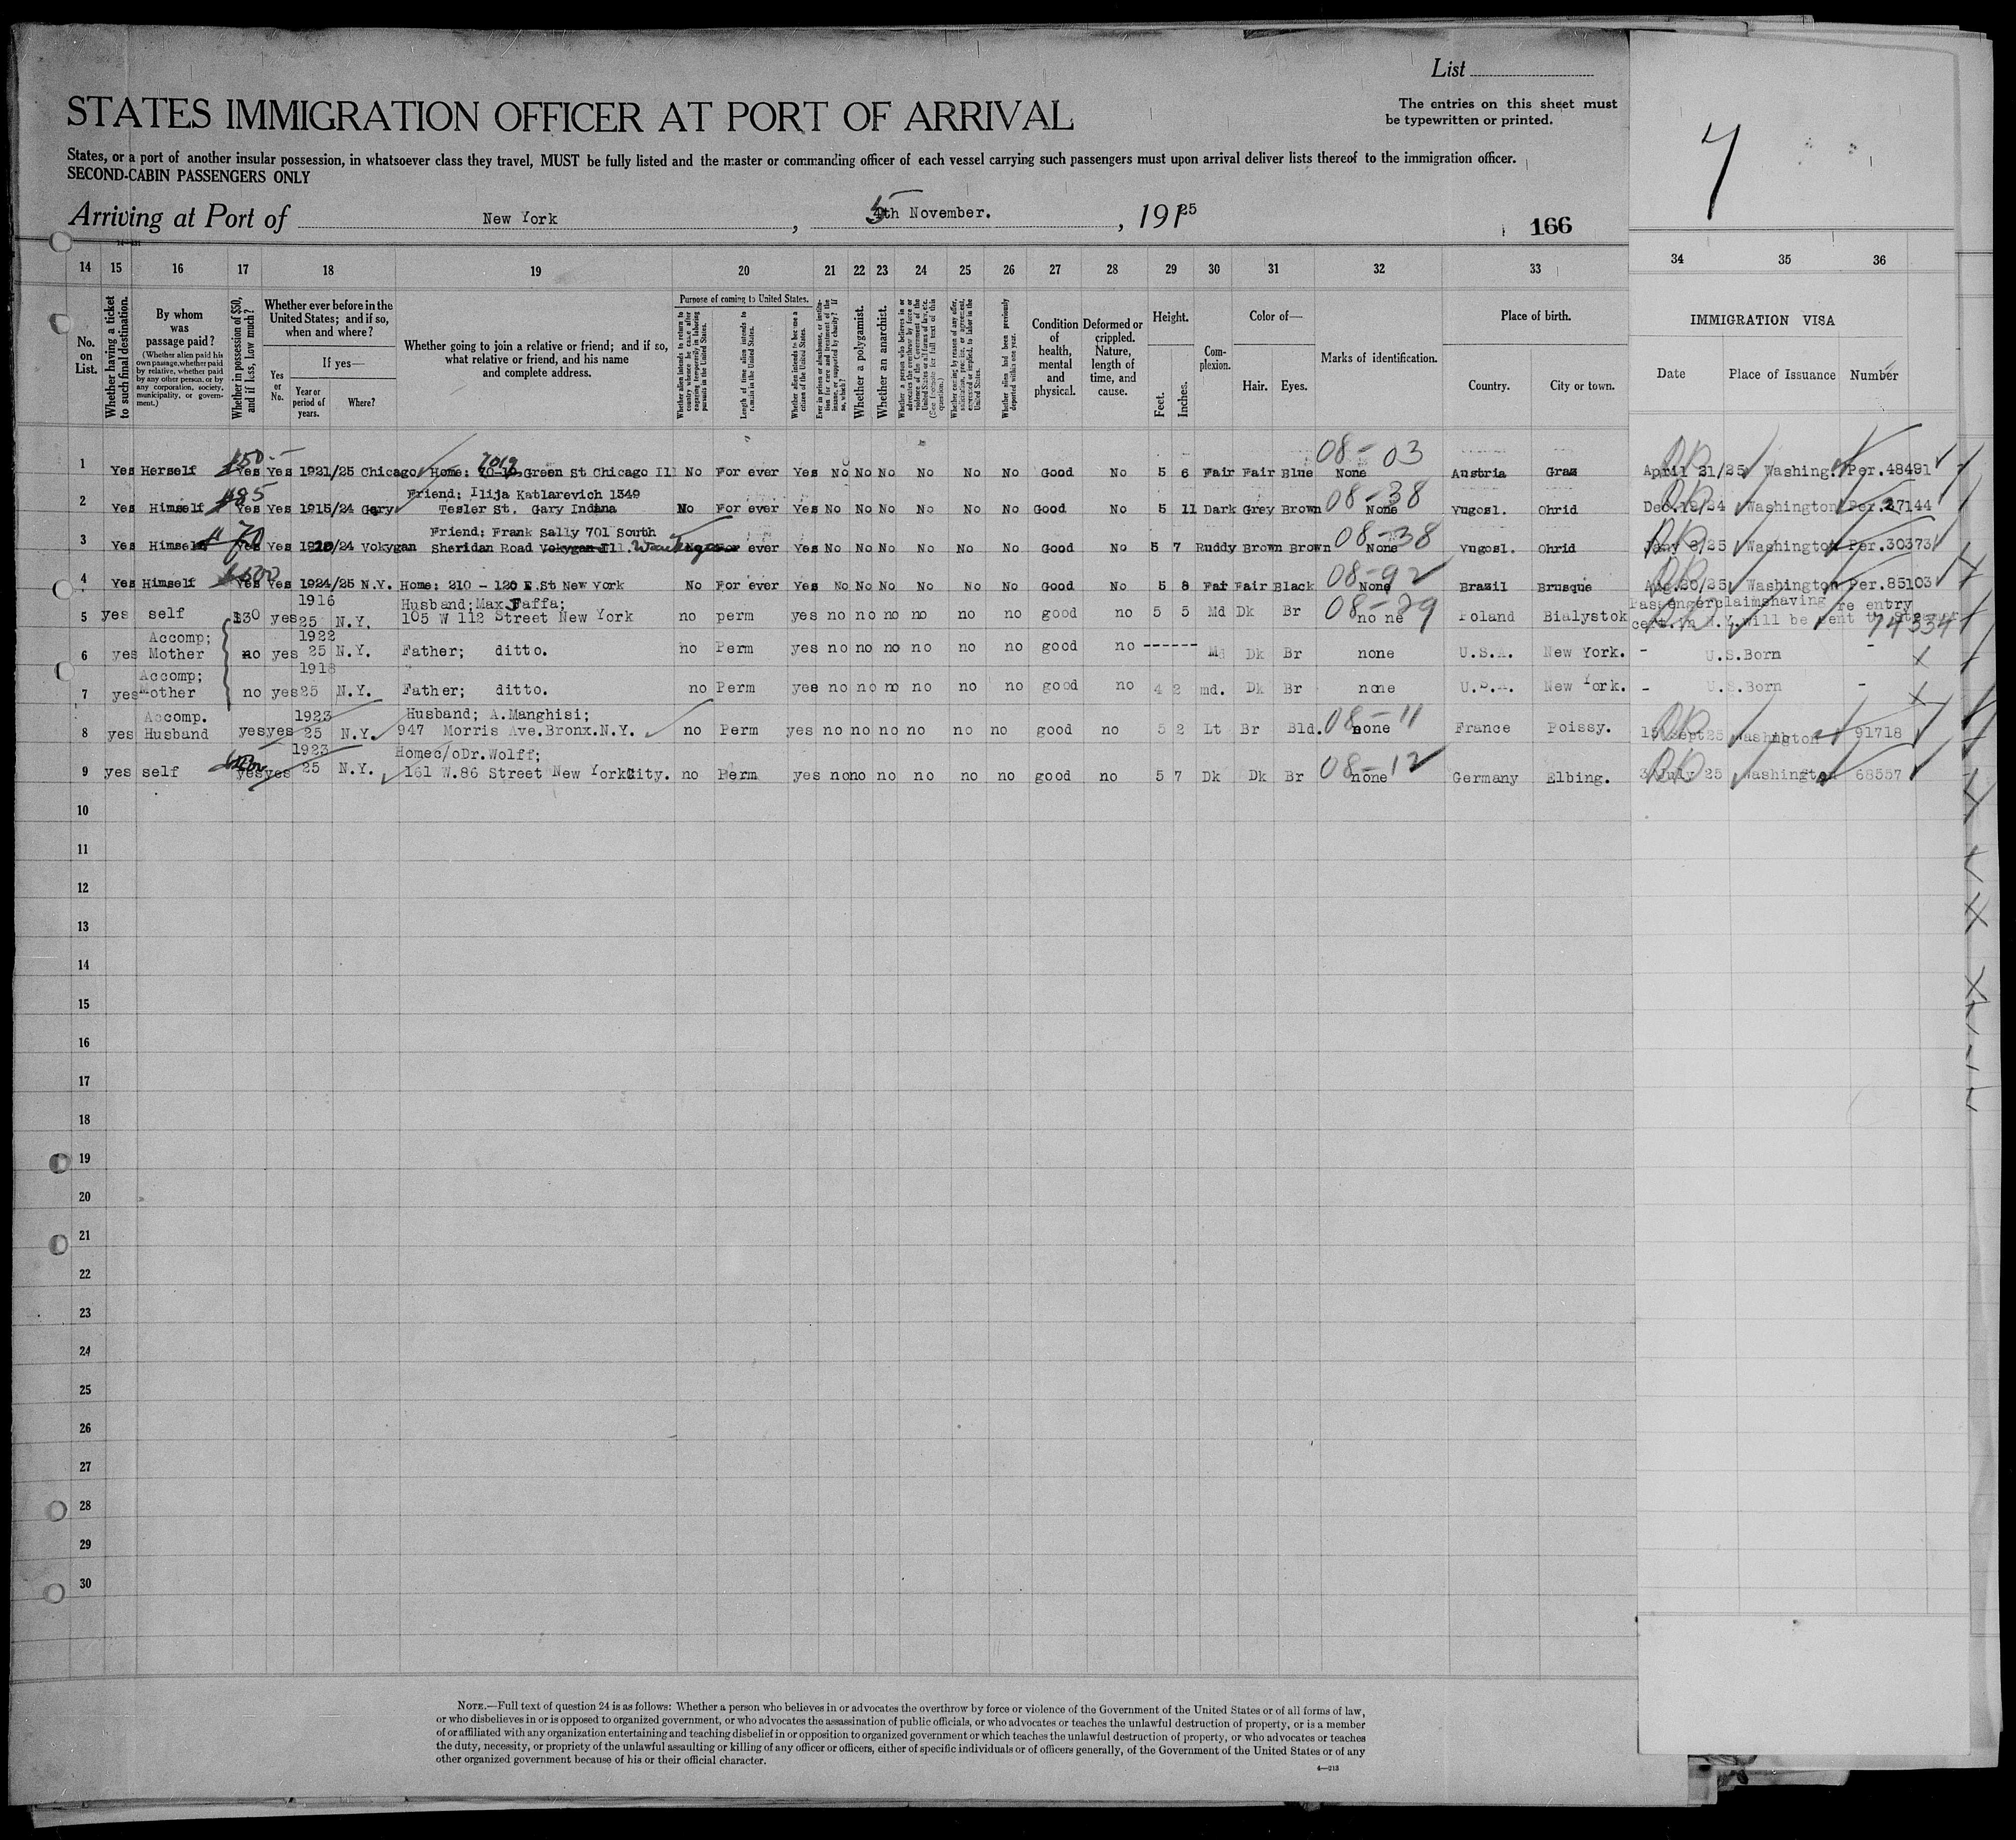 List
STATES IMMIGRATION OFFICER AT PORT OF ARRIVAL
The entries on this sheet must
be typewritten or printed.
7
States, or a port of another insular possession, in whatsoever class they travel, MUST be fully listed and the master or commanding officer of each vessel carrying such passengers must upon arrival deliver lists thereof to the immigration officer.
SECOND-CABIN PASSENGERS ONLY
Arriving at Port of New York, 5th November., 191 25
166
14 15 16 17 18 19 20 21 22 23 24 25 26 27 28 29 30 31 32 33 34 35 36
No. on List.
Whether having a ticket to such final destination.
By whom was passage paid?
(Whether alien paid his own passage, whether paid by relative, whether paid by any other person, or by any corporation, society, municipality, or government.)
Whether in possession of $50, and if less, how much?
Whether ever before in the United States; and if so, when and where?
Yes or No.
If yes—
Year or period of years.
Where?
Whether going to join a relative or friend; and if so, what relative or friend, and his name and complete address.
Purpose of coming to United States.
Whether alien intends to return to country whence he came after engaging temporarily in laboring pursuits in the United States.
Length of time alien intends to remain in the United States.
Whether alien intends to become a citizen of the United States.
Ever in prison or almshouse, or institution for care and treatment of the insane, or supported by charity? If so, which?
Whether a polygamist.
Whether an anarchist.
Condition of health, mental and physical.
Deformed or crippled. Nature, length of time, and cause.
Height.
Feet.
Inches.
Complexion.
Color of—
Hair.
Eyes.
Marks of identification.
Place of birth.
Country.
City or town.
IMMIGRATION VISA
Date
Place of Issuance
Number
1 Yes Herself $50.- Yes Yes 1921/25 Chicago Home: 7019 Green St Chicago Ill No For ever Yes No No No No No No Good No 5 6 Fair Fair Blue 08-03 None Austria Graz April 21/25 Washing. Per.48491
2 Yes Himself Yes Yes 1915/24 Gary Friend: Ilija Katlarevich 1349
Tesler St. Gary Indiana No For ever Yes No No No No No No Good No 5 11 Dark Grey Brown 08-38 None Yugosl. Ohrid Dec.19/24 Washington Per.27144
3 Yes Himself 70 Yes Yes 1920/24 Vokygan Friend: Frank Sally 701 South
Sheridan Road Vokygan Ill. No For ever Yes No No No No No No Good No 5 7 Ruddy Brown Brown 08-38 None Yugosl. Ohrid Jany 8/25 Washington Per.30373
4 Yes Himself $500 Yes Yes 1924/25 N.Y. Home: 210 - 120 E.St New York No For ever Yes No No No No No No Good No 5 8 Fair Fair Black 08-92 None Brazil Brusque Aug.20/25 Washington Per.85103
5 yes self 130 yes 1916 25 N.Y. Husband; Max Jaffa;
105 W 112 Street New York no perm yes no no no no no no good no 5 5 Md Dk Br 08-29 no ne Poland Bialystok Passenger claims having re entry
cert. in N.Y. will be sent to 74334
6 yes Accomp; Mother no yes 1922 25 N.Y. Father; ditto. no Perm yes no no no no no no good no ------ Md Dk Br none U.S.A. New York. - U.S.Born -
7 yes Accomp; Mother no yes 1918 25 N.Y. Father; ditto. no Perm yes no no no no no no good no 4 2 md. Dk Br none U.S.A. New York. - U.S.Born -
8 yes Accomp. Husband yes yes 1923 25 N.Y. Husband; A.Manghisi;
947 Morris Ave.Bronx.N.Y. no Perm yes no no no no no no good no 5 2 Lt Br Bld. 08-11 none France Poissy. 15 Sept 25 Washington 91718
9 yes self yes yes 1923 25 N.Y. Home c/o Dr.Wolff;
161 W.86 Street New York City. no Perm yes no no no no no no good no 5 7 Dk Dk Br 08-12 none Germany Elbing. July 25 Washington 68557
10
11
12
13
14
15
16
17
18
19
20
21
22
23
24
25
26
27
28
29
30
NOTE.—Full text of question 24 is as follows: Whether a person who believes in or advocates the overthrow by force or violence of the Government of the United States or of all forms of law,
or who disbelieves in or is opposed to organized government, or who advocates the assassination of public officials, or who advocates or teaches the unlawful destruction of property, or is a member
of or affiliated with any organization entertaining and teaching disbelief in or opposition to organized government or which teaches the unlawful destruction of property, or who advocates or teaches
the duty, necessity, or propriety of the unlawful assaulting or killing of any officer or officers, either of specific individuals or of officers generally, of the Government of the United States or of any
other organized government because of his or their official character.
4—213